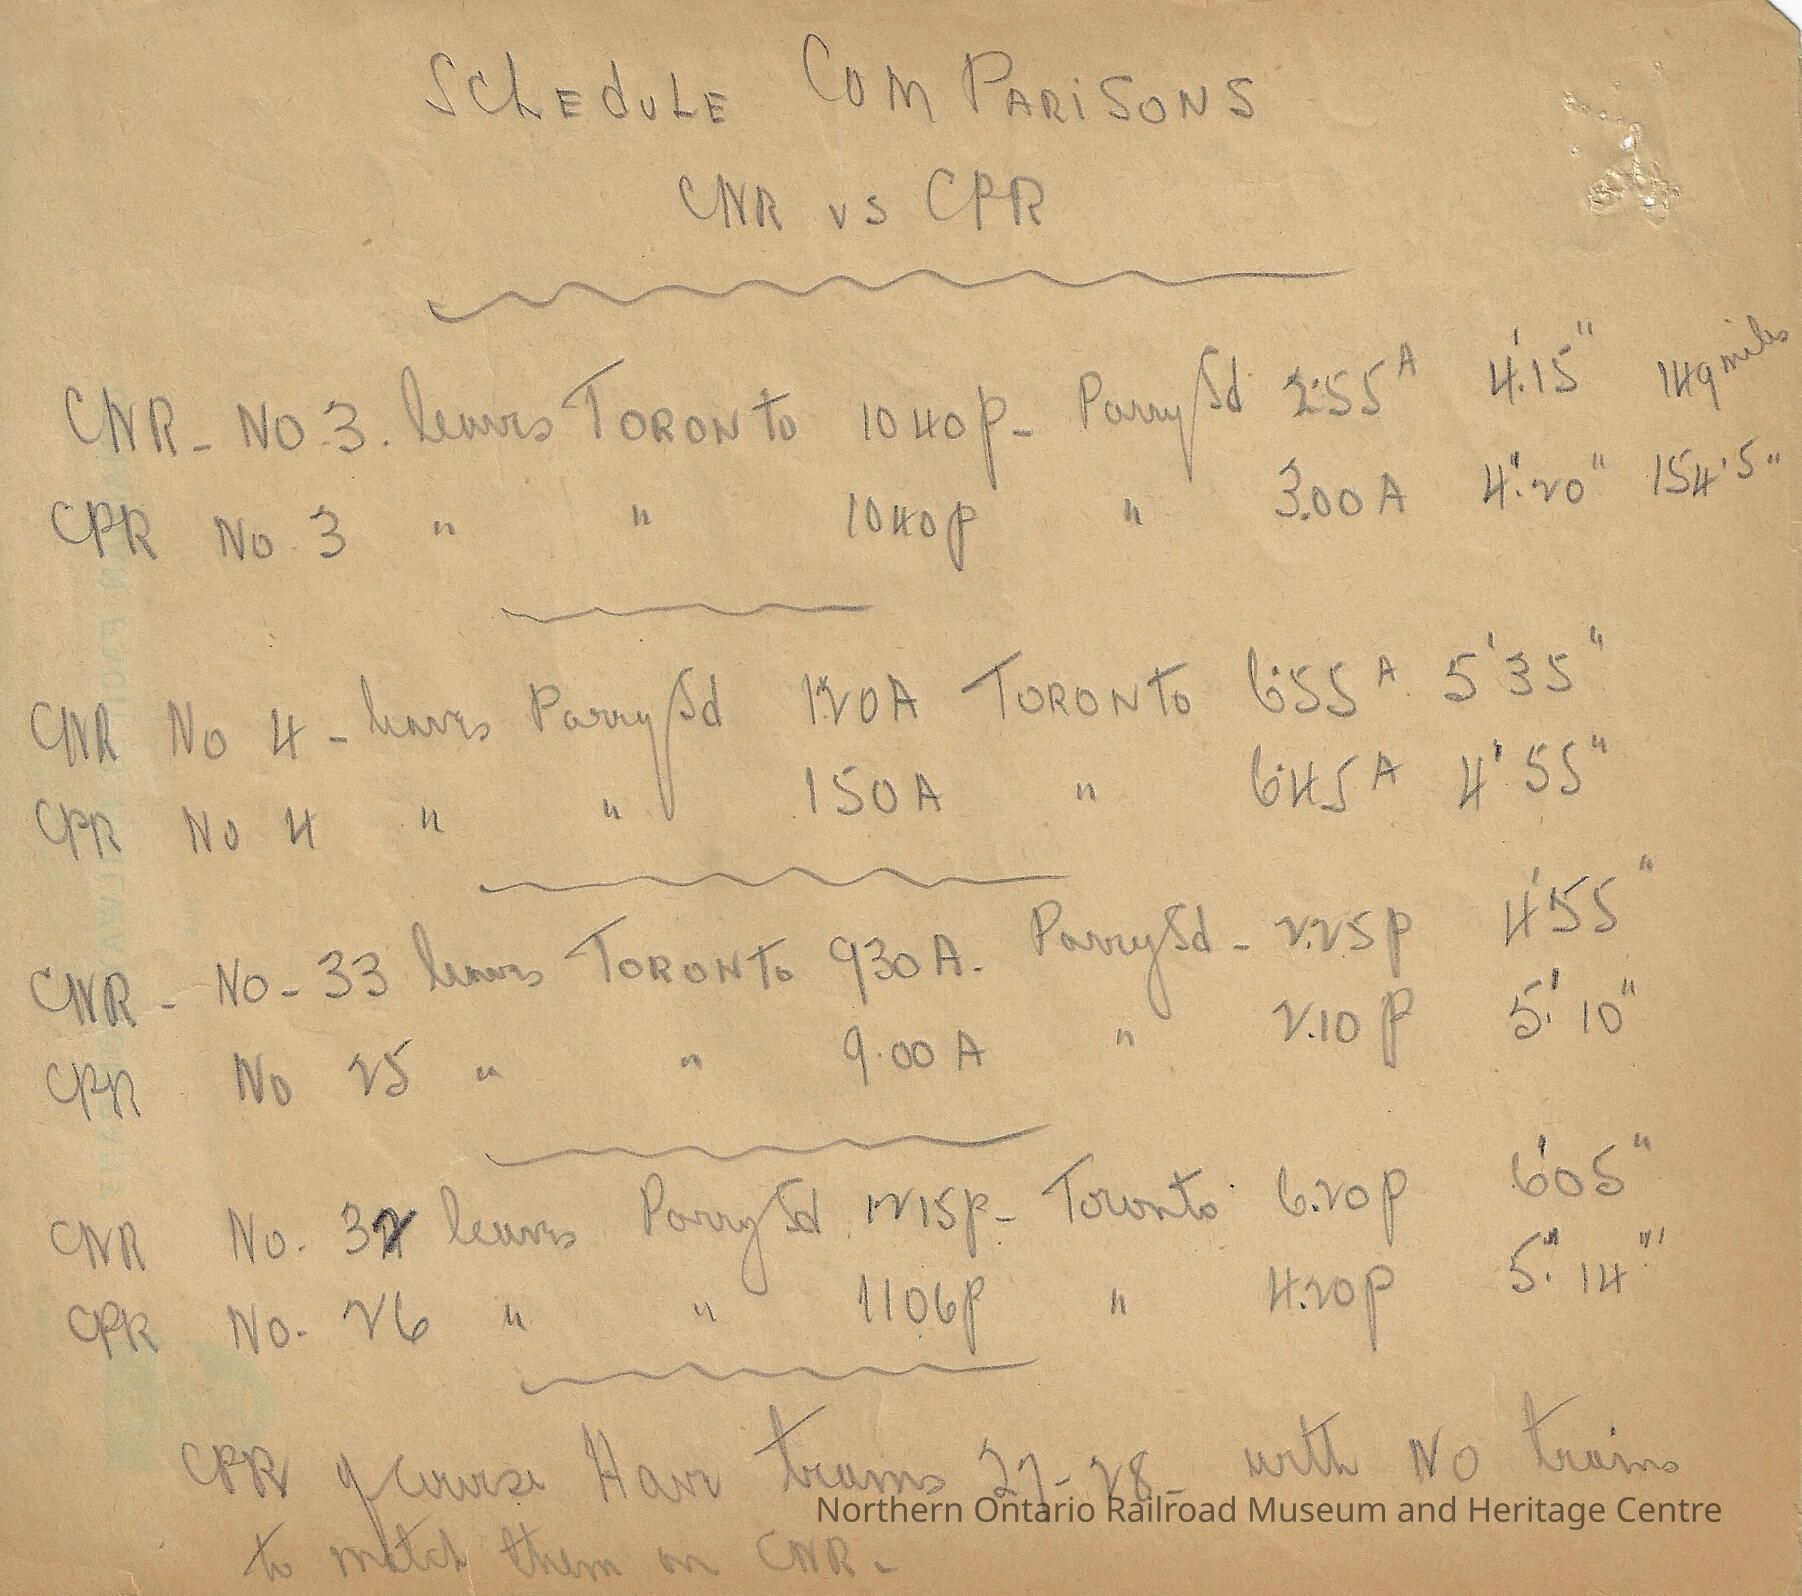 SCHEDULE COMPARISONS
CNR vs CPR
CNR - No. 3. leaves TORONTO 1040p - Parry Sd 2.55 A 4'.15" 149 miles
CPR No. 3 " " 1040p " 3.00 A 4'.20" 154.5 "
CNR No 4 - leaves Parry Sd 120A TORONTO 6.55 A. 5'35"
CPR No 4 " " 150A " 6.45 A 4'55"
CNR - No - 33 leaves TORONTO 930 A. Parry Sd - 2.25p 4'55"
CPR No 25 " " 9.00 A " 2.10p 5.'10"
CNR No. 32 leaves Parry Sd 1215p - Toronto 6.20p 6'05"
CPR No. 26 " " 1106p " 4.20p 5." 14"'
CPR of course Have trains 27-28 - with No trains
to match them on CNR -
Northern Ontario Railroad Museum and Heritage Centre